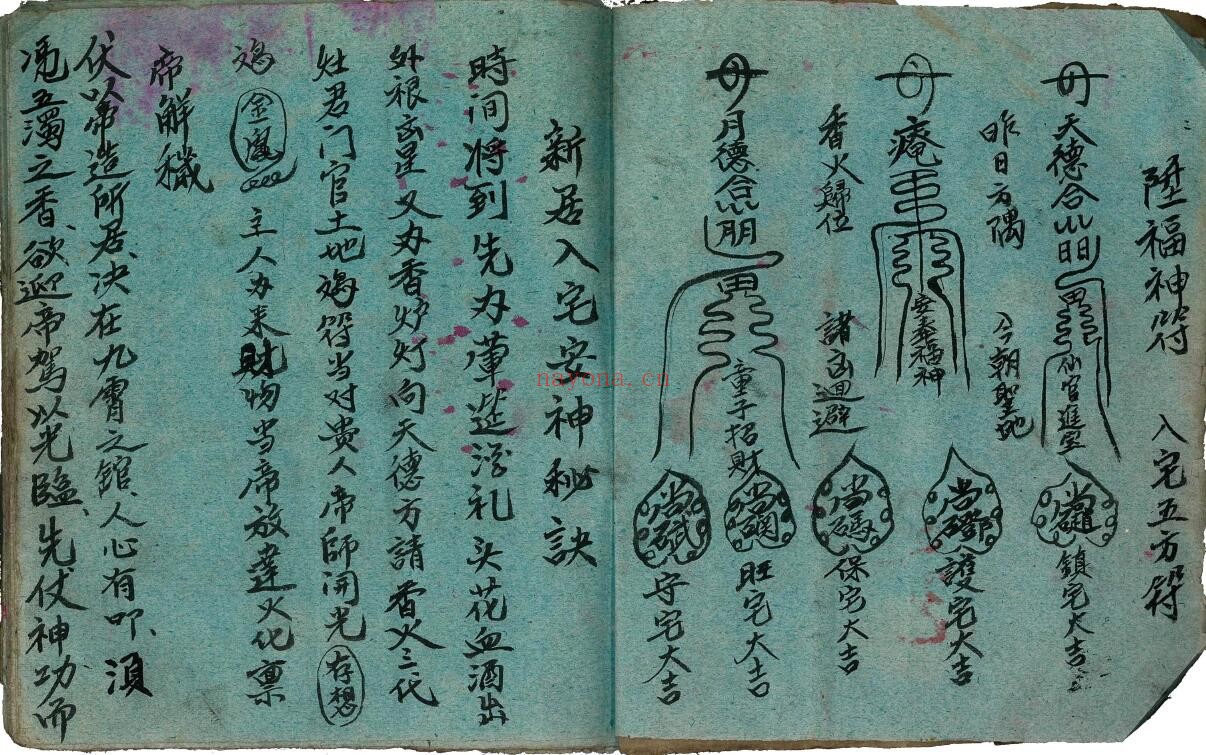 陞福神符 入宅五方符
天德合 仙官進宝
昨日方隅 今朝聖地
唵 安奉福神
香火歸位 諸凶迴避
月德合 童子招財
鎮宅大吉
護宅大吉
保宅大吉
旺宅大吉
守宅大吉
新居入宅安神秘訣
時间将到先办葷筵 礼头花血酒出
外根凶星又办香炉灯向天德方請香火三代
灶君门官土地 符当对贵人帝師開光 存想
金鳳 主人办来財物当帝放達火化禀
帝解穢
伏以帝造所居、决在九霄之館、人心有叩、須
凴五濁之香、欲迎帝駕以光臨、先仗神功而
nayona.cn